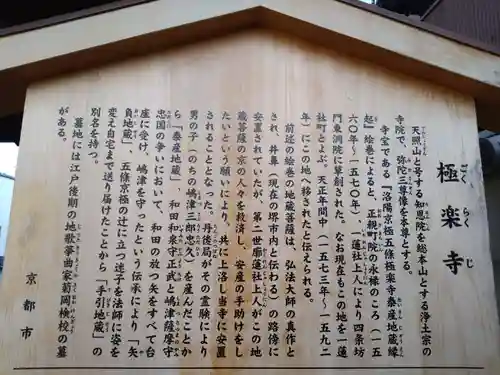 極楽寺
ごくらくじ
天照山と号する知恩院を総本山とする浄土宗の
寺院で、弥陀三尊像を本尊とする。
寺宝である『洛陽京極五條極楽寺泰産地蔵縁
起』絵巻によると、正親町院の永禄のころ(一五
六〇年~一五七〇年)、蓮社上人により四条坊
門東洞院に草創された。なお現在もこの地を一蓮
社町とよぶ。天正年間中(一五七三年~一五九二
年)にこの地へ移されたと伝えられる。
前述の絵巻の地蔵菩薩は、弘法大師の真作と
され、井鼻(現在の堺市内と伝わる)の路傍に
安置されていたが、第二世廓蓮社上人がこの地
蔵菩薩が京の人々を救済し、安産の手助けをし
たいという願いにより、共に上洛し当寺に安置
されることとなった。丹後局がその霊験により
男の子(のちの嶋津三郎忠久)を産んだことか
ら「泰産地蔵」、和田和泉守正武と嶋津薩摩守
忠国の争いにおいて、和田の放つ矢をすべて台
座に受け、嶋津を守ったという伝承により「矢
負地蔵」、五條京極の辻に立つ迷子を法師に姿を
変え自宅まで送り届けたことから「手引地蔵」の
別名を持つ。
墓地には江戸後期の地歌箏曲家菊岡検校の墓
がある。
京都市